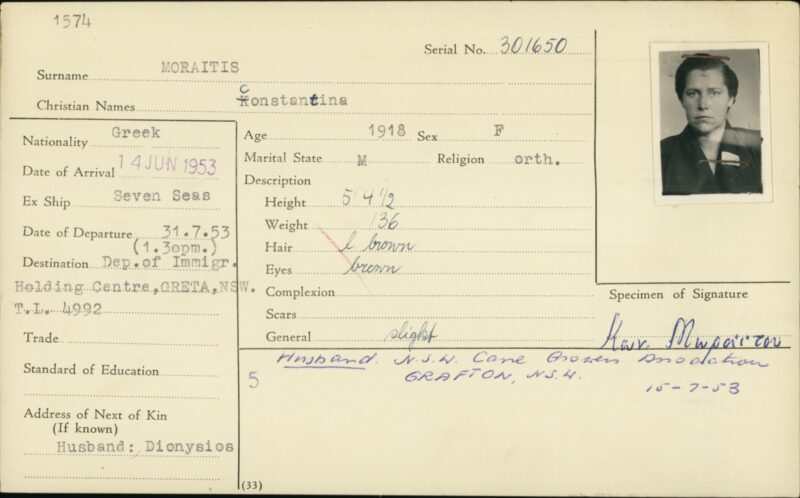 1574
Serial No. 301650
Surname MORAITIS
Christian Names Constantina
Nationality Greek
Date of Arrival 14 JUN 1953
Ex Ship Seven Seas
Date of Departure 31.7.53
(1.30pm.)
Destination Dep.of Immigr.
Holding Centre, GRETA, NSW.
T.L. 4992
Trade
Standard of Education
Address of Next of Kin
(If known)
Husband: Dionysios
Age 1918 Sex F
Marital State M Religion orth.
Description
Height 5' 4 1/2
Weight 136
Hair l brown
Eyes brown
Complexion
Scars
General slight
Specimen of Signature
Husband. N.S.W. Cane Growers Association
GRAFTON, N.S.W.
15-7-53
5
(33)